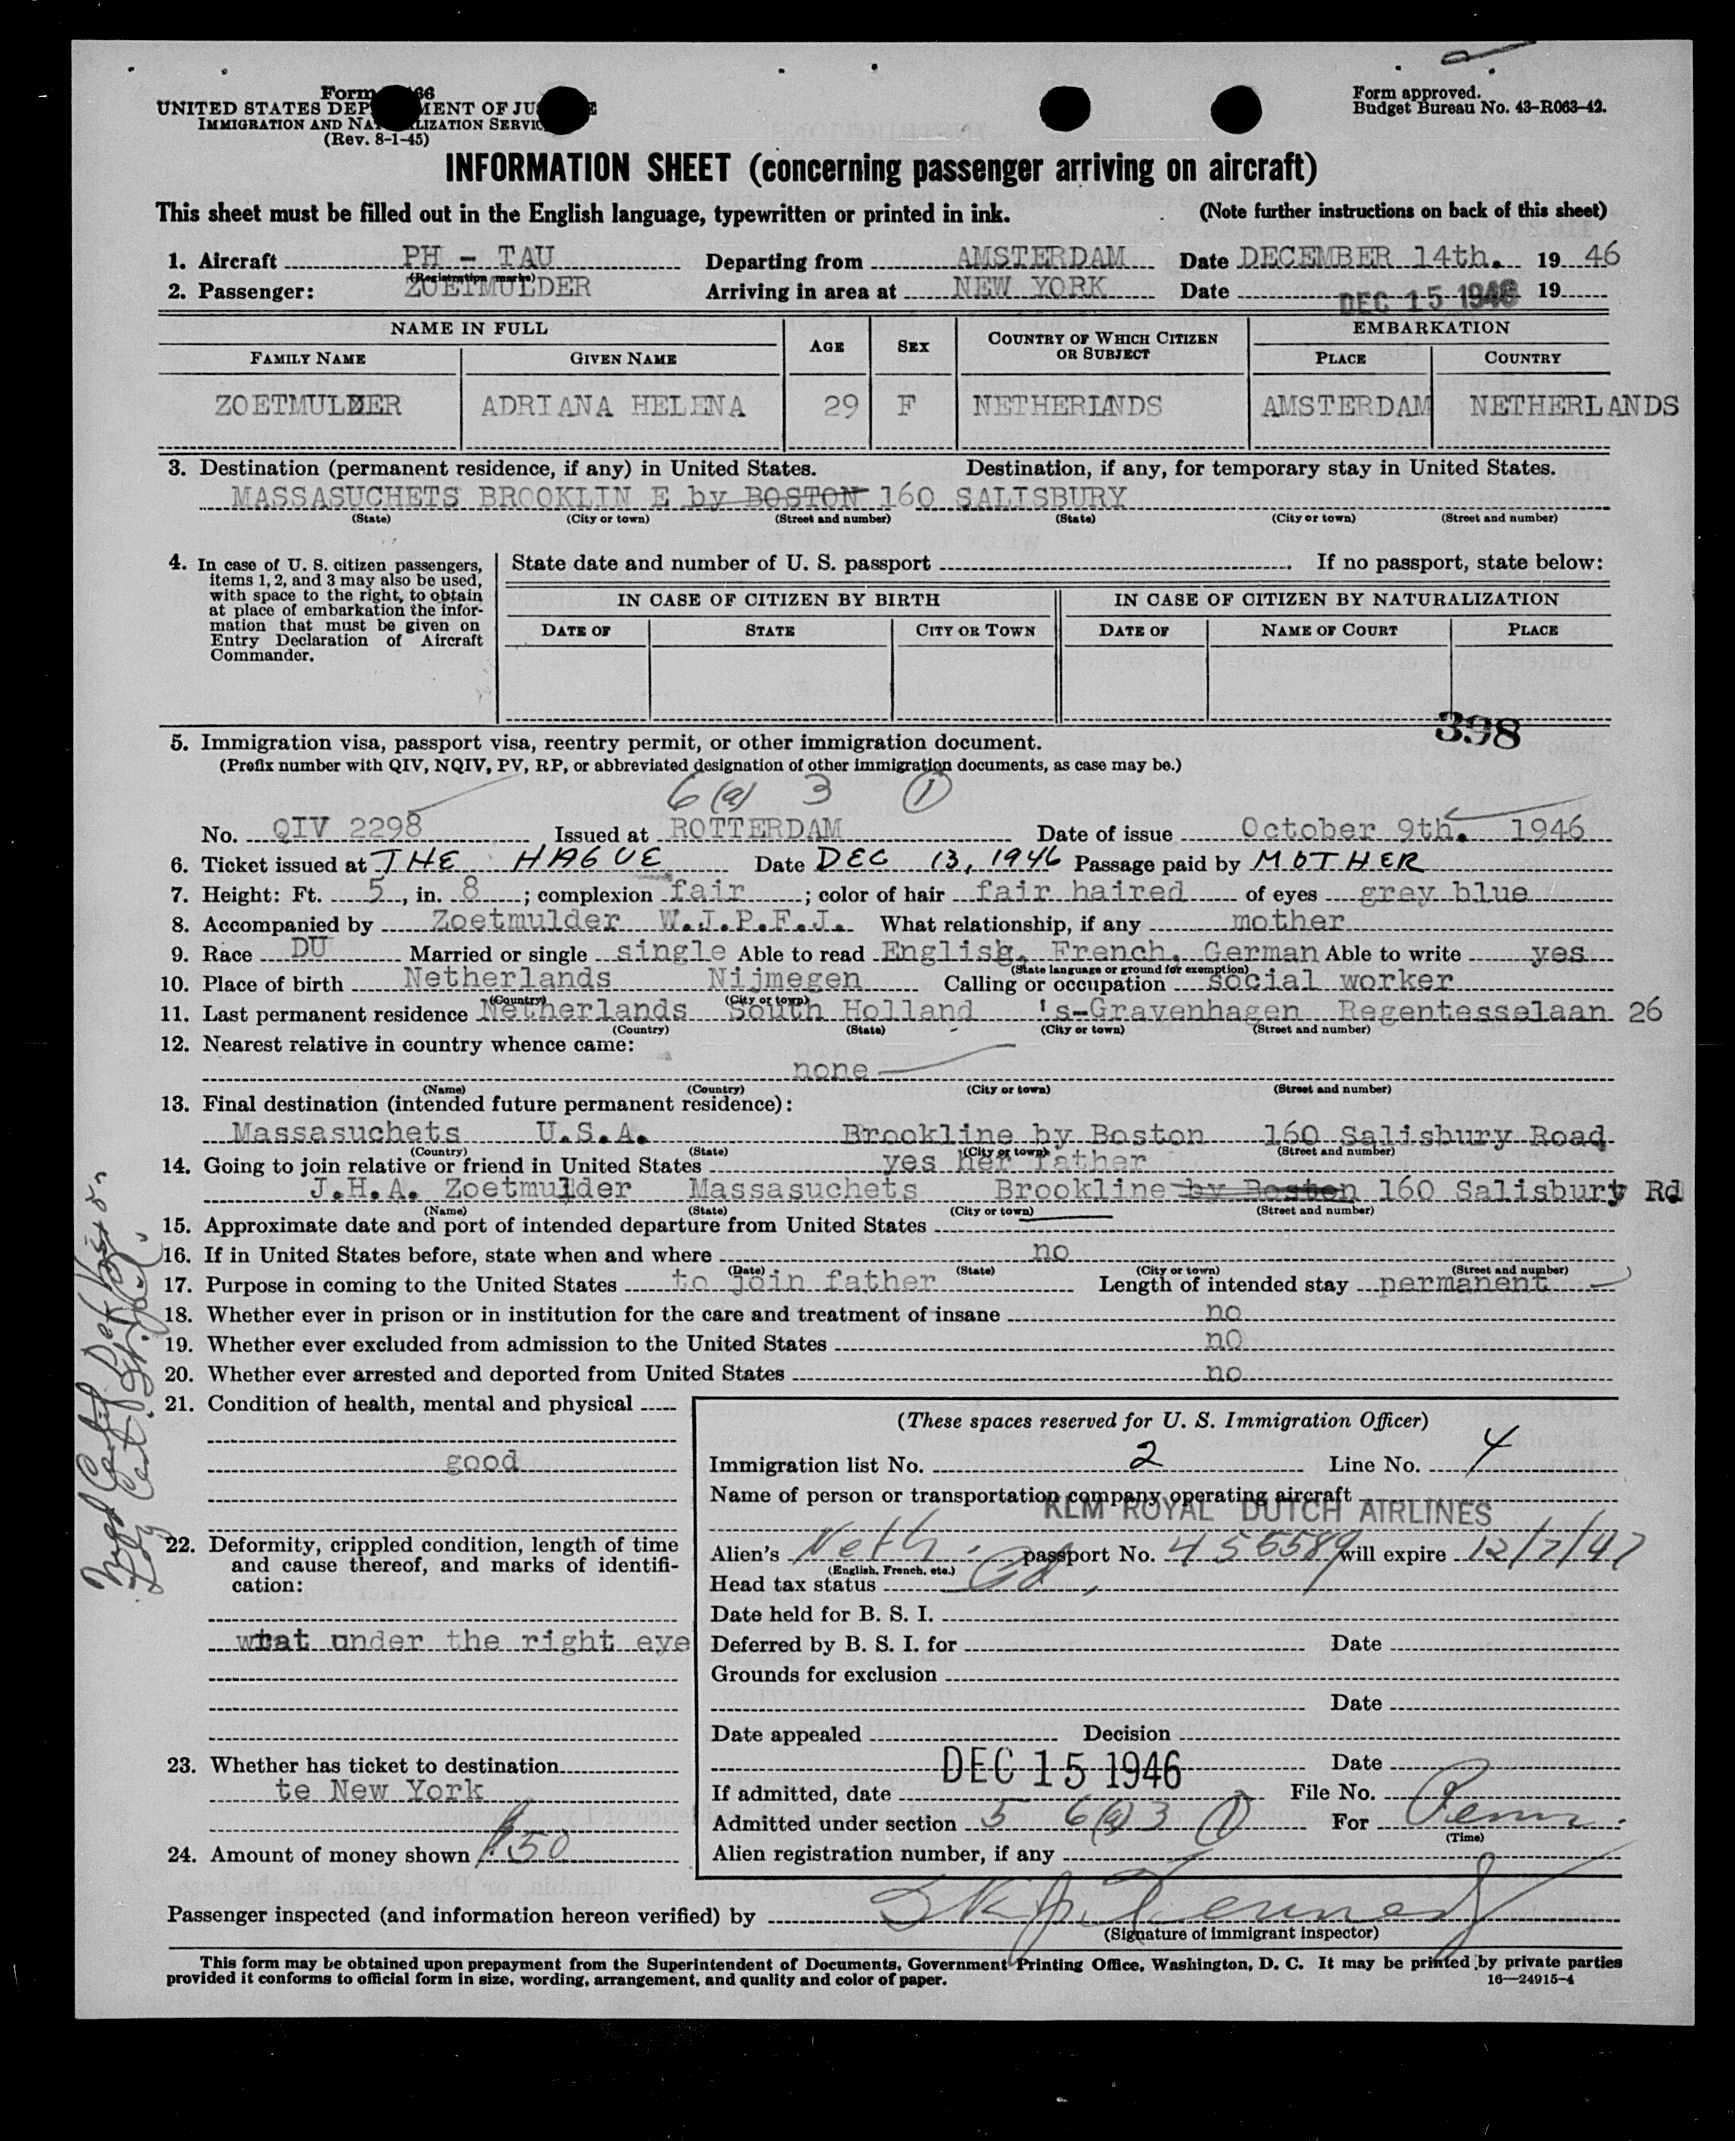 Form 66
UNITED STATES DEP MENT OF JU E
IMMIGRATION AND NA LIZATION SERVIC
(Rev. 8-1-45)
Form approved.
Budget Bureau No. 43-R063-42.
INFORMATION SHEET (concerning passenger arriving on aircraft)
This sheet must be filled out in the English language, typewritten or printed in ink. (Note further instructions on back of this sheet)
1. Aircraft PH - TAU Departing from AMSTERDAM Date DECEMBER 14th. 19 46
(Registration marks)
2. Passenger: ZOETMULDER Arriving in area at NEW YORK Date DEC 15 1946 19
NAME IN FULL AGE SEX COUNTRY OF WHICH CITIZEN OR SUBJECT EMBARKATION
FAMILY NAME GIVEN NAME PLACE COUNTRY
ZOETMULDER ADRIANA HELENA 29 F NETHERLANDS AMSTERDAM NETHERLANDS
3. Destination (permanent residence, if any) in United States. Destination, if any, for temporary stay in United States.
MASSASUCHETS BROOKLIN E by BOSTON 160 SALISBURY
(State) (City or town) (Street and number) (State) (City or town) (Street and number)
4. In case of U. S. citizen passengers, items 1, 2, and 3 may also be used, with space to the right, to obtain at place of embarkation the information that must be given on Entry Declaration of Aircraft Commander.
State date and number of U. S. passport If no passport, state below:
IN CASE OF CITIZEN BY BIRTH IN CASE OF CITIZEN BY NATURALIZATION
DATE OF STATE CITY OR TOWN DATE OF NAME OF COURT PLACE
398
5. Immigration visa, passport visa, reentry permit, or other immigration document.
(Prefix number with QIV, NQIV, PV, RP, or abbreviated designation of other immigration documents, as case may be.)
6(a) 3 (1)
No. QIV 2298 Issued at ROTTERDAM Date of issue October 9th. 1946
6. Ticket issued at THE HAGUE Date DEC 13, 1946 Passage paid by MOTHER
7. Height: Ft. 5, in. 8; complexion fair; color of hair fair haired of eyes grey blue
8. Accompanied by Zoetmulder W.J.P.F.J. What relationship, if any mother
9. Race DU Married or single single Able to read English, French, German Able to write yes
(State language or ground for exemption)
10. Place of birth Netherlands Nijmegen Calling or occupation social worker
(Country) (City or town)
11. Last permanent residence Netherlands South Holland 's-Gravenhagen Regentesselaan 26
(Country) (State) (City or town) (Street and number)
12. Nearest relative in country whence came:
none
(Name) (Country) (City or town) (Street and number)
13. Final destination (intended future permanent residence):
Massasuchets U.S.A. Brookline by Boston 160 Salisbury Road
(Country) (State) (City or town) (Street and number)
14. Going to join relative or friend in United States yes her father
J.H.A. Zoetmulder Massasuchets Brookline by Boston 160 Salisbury Rd
(Name) (State) (City or town) (Street and number)
15. Approximate date and port of intended departure from United States
16. If in United States before, state when and where no
(Date) (State) (City or town) (Street and number)
17. Purpose in coming to the United States to join father Length of intended stay permanent
18. Whether ever in prison or in institution for the care and treatment of insane no
19. Whether ever excluded from admission to the United States no
20. Whether ever arrested and deported from United States no
21. Condition of health, mental and physical
good
22. Deformity, crippled condition, length of time and cause thereof, and marks of identification:
wtat under the right eye
23. Whether has ticket to destination
te New York
24. Amount of money shown $50
(These spaces reserved for U. S. Immigration Officer)
Immigration list No. 2 Line No. 4
Name of person or transportation company operating aircraft
KLM ROYAL DUTCH AIRLINES
Alien's Neth. passport No. 456589 will expire 12/7/47
(English, French, etc.)
Head tax status Pd.
Date held for B. S. I.
Deferred by B. S. I. for Date
Grounds for exclusion
Date
Date appealed Decision
Date
If admitted, date DEC 15 1946 File No.
Admitted under section 5 6(a) 3 (1) For Perm.
(Time)
Alien registration number, if any
Passenger inspected (and information hereon verified) by
(Signature of immigrant inspector)
This form may be obtained upon prepayment from the Superintendent of Documents, Government Printing Office, Washington, D. C. It may be printed by private parties
provided it conforms to official form in size, wording, arrangement, and quality and color of paper. 16—24915-4